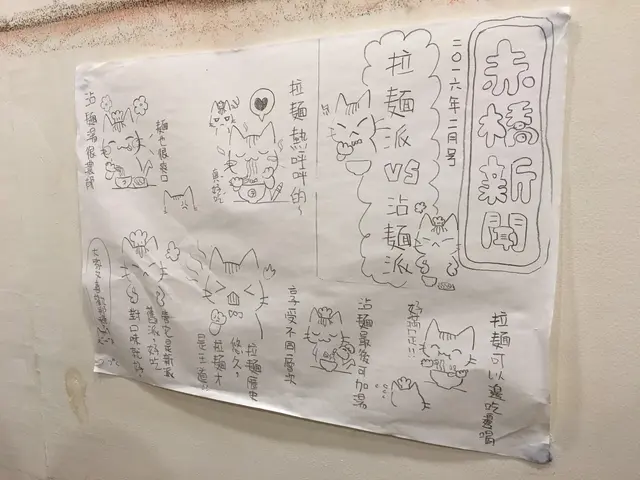 赤橋新聞
二〇一六年二月号
拉麵派vs沾麵派
拉麵熱呼呼的~
真好吃
麵也很爽口
沾麵湯很濃醇
拉麵可以邊吃邊喝
好幸福!!
沾麵最後可加湯
享受不同層次
拉麵歷史
悠久。
拉麵才
是王道!!
管它是新派
舊派,好吃
對口味就好